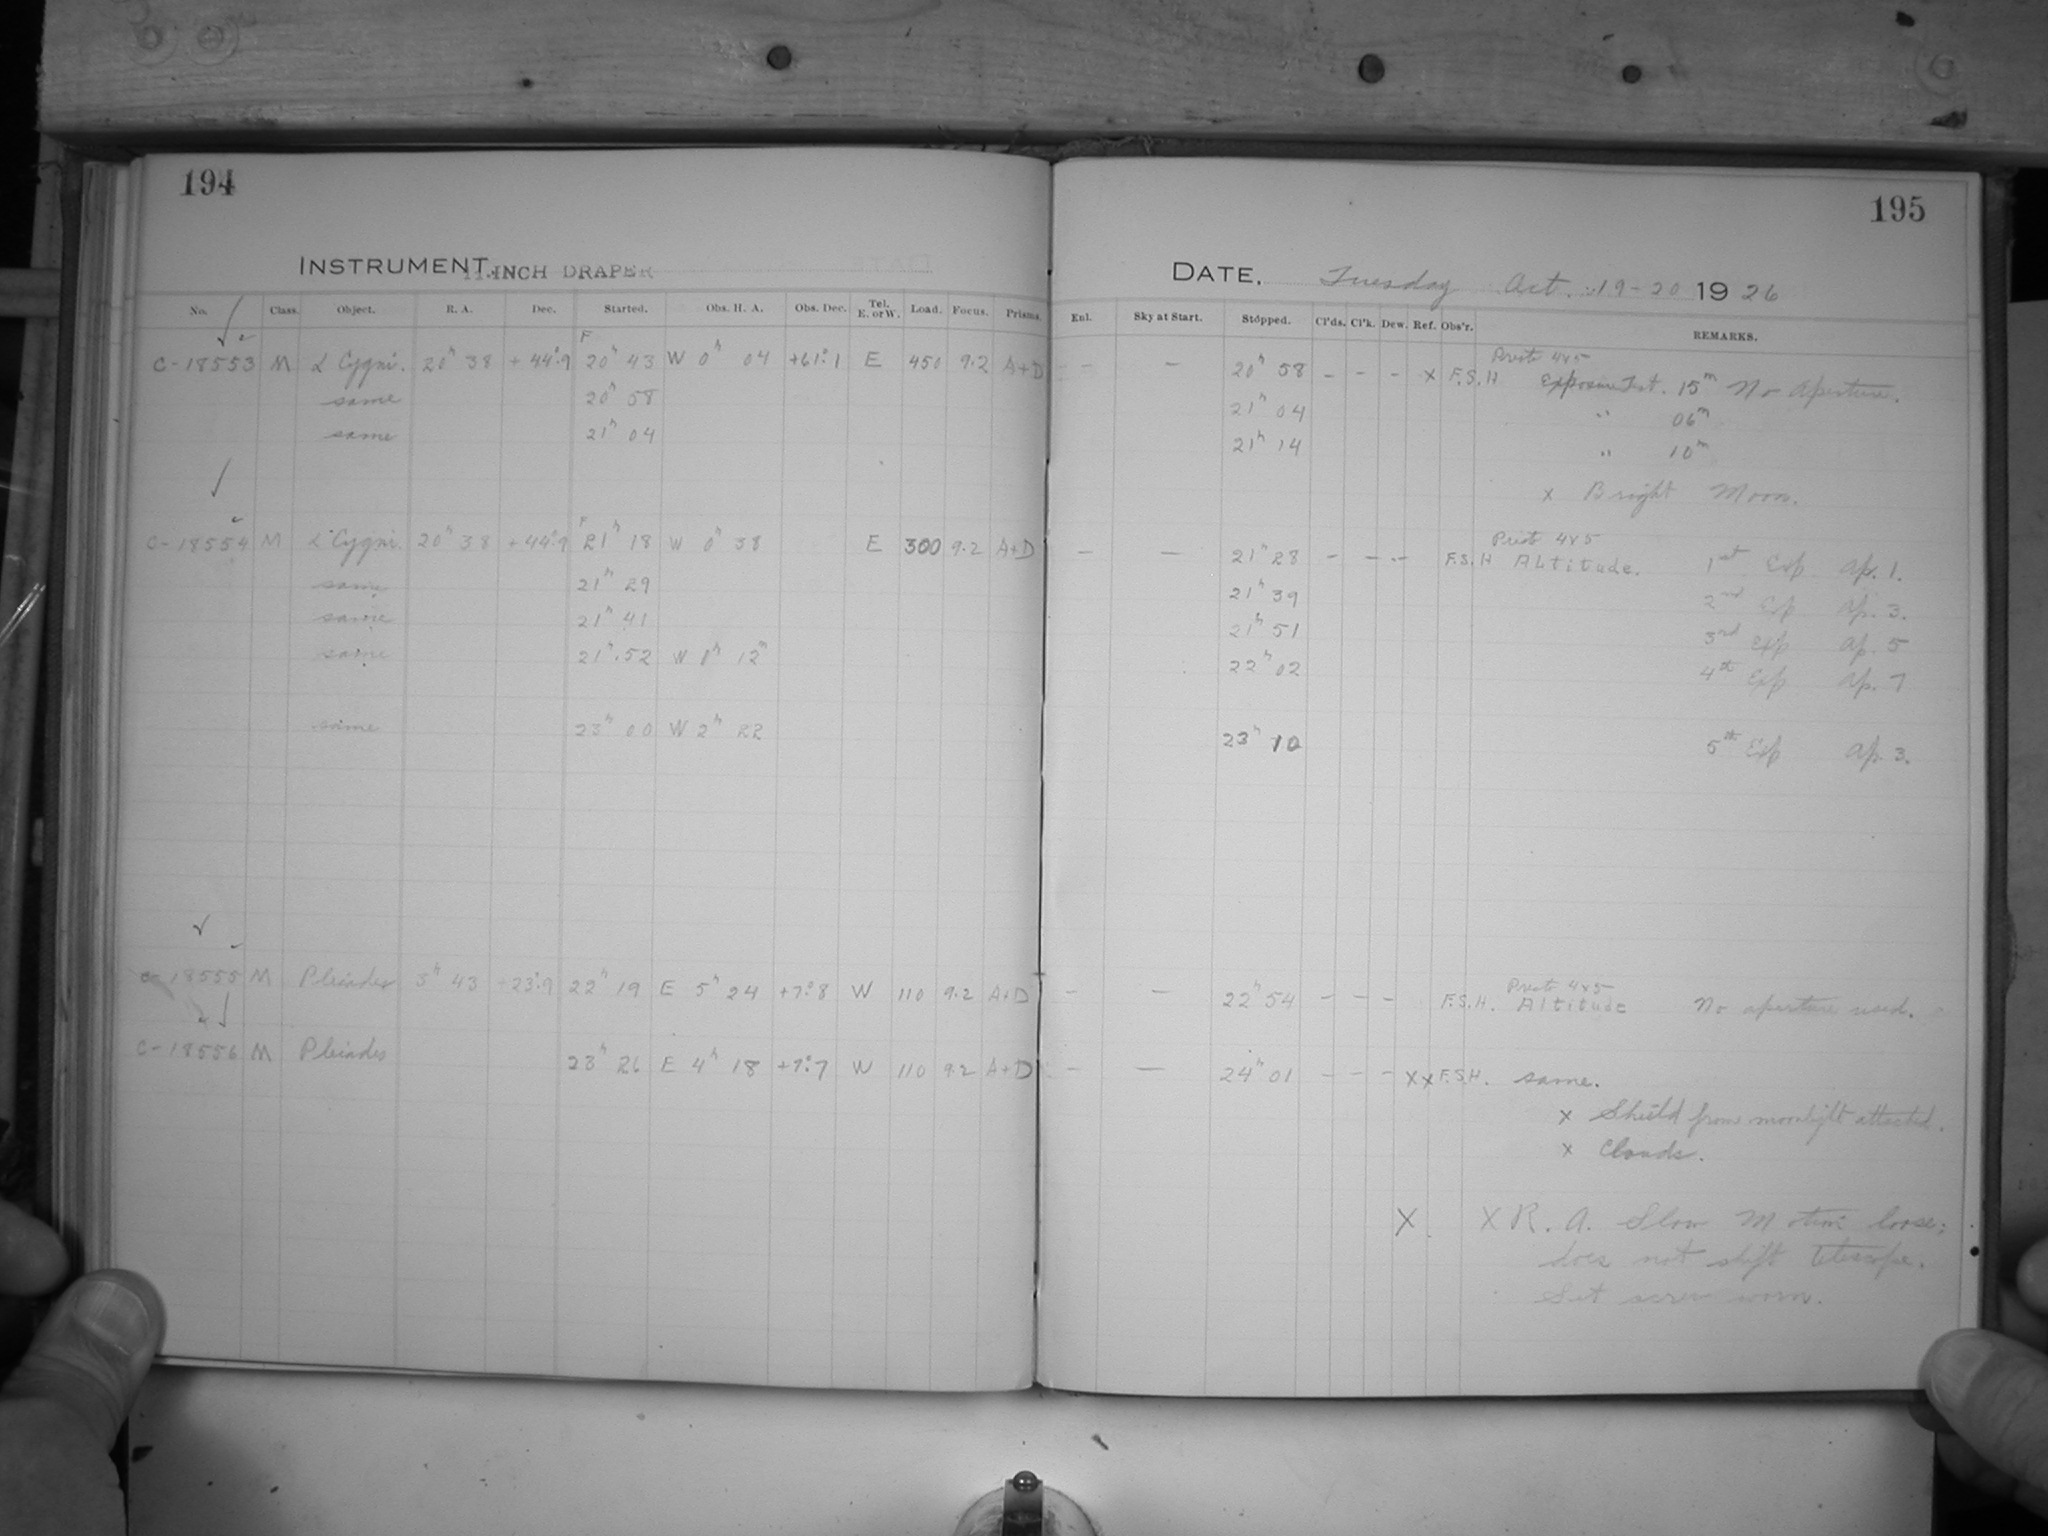 194
INSTRUMENT. 11-INCH DRAPER
No. Class. Object. R. A. Dec. Started. Obs. H. A. Obs. Dec. Tel. E. or W. Load. Focus. Prisms.
F
C-18553 M α Cygni. 20h 38 +44°.9 20h 43 W 0h 04 +61°.1 E 450 9.2 A+D
same 20h 58
same 21h 04
F
C-18554 M α Cygni. 20h 38 +44°.9 21h 18 W 0h 38 E 300 9.2 A+D
same 21h 29
same 21h 41
same 21h 52 W 0h 12m
same 23h 00 W 2h 22
C-18555 M Pleiades 3h 43 +23°.9 22h 19 E 5h 24 +7°.8 W 110 9.2 A+D
C-18556 M Pleiades 23h 26 E 4h 18 +7°.7 W 110 9.2 A+D
195
DATE. Tuesday Oct. 19-20 1926
Enl. Sky at Start. Stopped. Cl'ds. Cl'k. Dew. Ref. Obs'r. REMARKS.
4x5
- - 20h 58 - - - x F.S.H Exposure Test. 15m No Aperture.
21h 04 " 06m
21h 14 " 10m
x Bright Moon.
4x5
- - 21h 28 - - - F.S.H Altitude. 1st Exp Ap. 1.
21h 39 2nd Exp Ap. 3.
21h 51 3rd Exp Ap. 5
22h 02 4th Exp Ap. 7
23h 10 5th Exp Ap. 3.
4x5
- - 22h 54 - - - F.S.H. Altitude No aperture used.
- - 24h 01 - - - xx F.S.H. same.
x Shield from moonlight attached.
x Clouds.
X. X R. A. Slow Motion loose;
does not shift telescope.
Set screw worn.